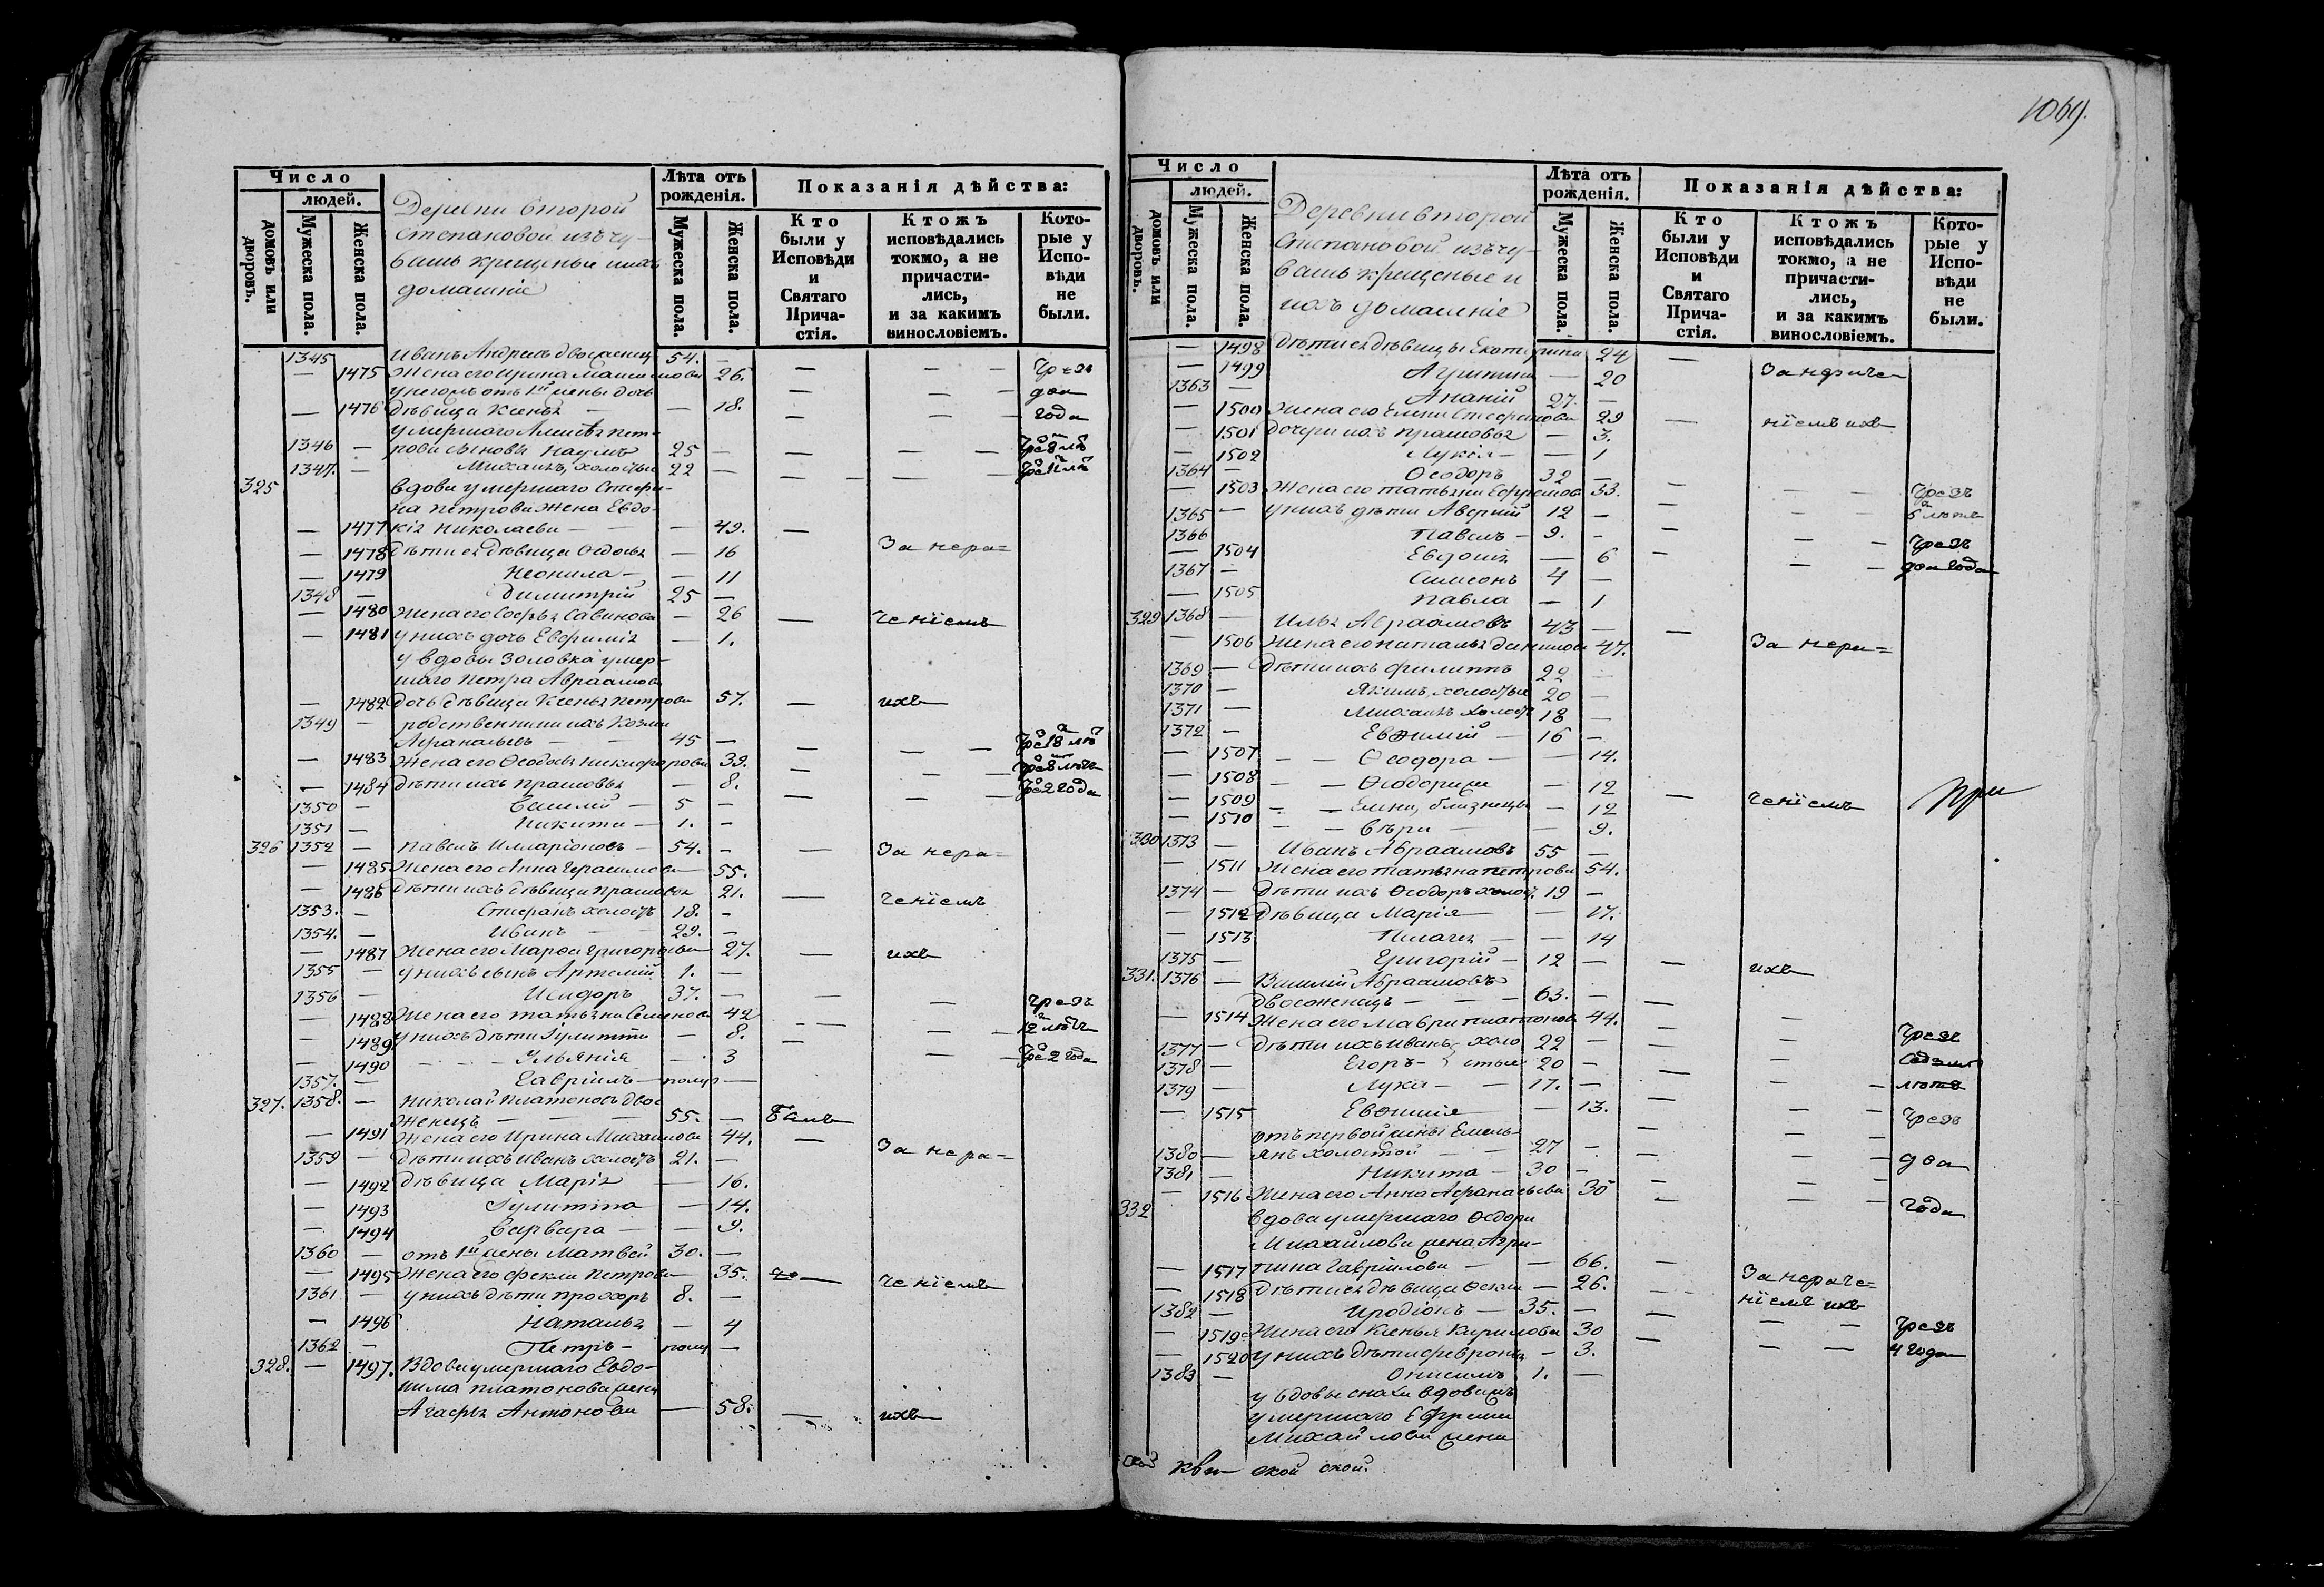 1069.
Число
людей.
домовъ или дворовъ.
Мужеска пола.
Женска пола.
Деревни второй
Степановой изъ чу-
вашъ крещеные и ихъ
домашніе
Лѣта отъ рожденія.
Мужеска пола.
Женска пола.
Показанія дѣйства:
Кто были у Исповѣди и Святаго Прича-стія.
Ктожъ исповѣдались токмо, а не причасти-лись, и за какимъ винословіемъ.
Кото-рые у Испо-вѣди не были.
1345 Иванъ Андреевъ двоеженец 54. —
— 1475 Жена его Ирина Максимова 26. — — — Чрезъ
у него отъ 1й жены дочь — — — два
— 1476 дѣвица Ксенья — — 18. — — — года
умершаго Алексѣя Пет-
1346 — рова сыновья Наумъ 25 — — — —
1347. — Михаилъ, холостые 22 — — — —
325 вдова умершаго Стефа-
на Петрова жена Евдо-
— 1477 кія Николаева — — 49. —
— 1478 дѣти ея дѣвица Ѳедосья — 16 За нера=
— 1479 Неонила — — 11
1348 — Димитрій 25 —
— 1480 Жена его Софья Савинова — 26 — ченіемъ
— 1481 у нихъ дочь Евфимія — 1.
у вдовы золовка умер-
шаго Петра Авраамова
— 1482 дочь дѣвица Ксенья Петрова 57. — ихъ
1349 — родственники ихъ Козма
Афанасьевъ — — 45 — — — — Чрезъ 18 лѣ
— 1483 Жена его Ѳеодосья Никифорова 39. — — — Чрезъ 8 лѣтъ
— 1484 дѣти ихъ Прасковья — 8. — — — Чрезъ 2 года
1350 — Василий — 5 —
1351 — Никита — 1. —
326 1352 — Павелъ Илларіоновъ — 54. — — За нера=
— 1485 Жена его Анна Герасимова — 55.
— 1486 дѣти ихъ дѣвица Прасковья 21. — ченіемъ
1353. — Стефанъ холостъ 18. —
1354. — Иванъ — — 29. —
— 1487 Жена его Марѳа Григорьева 27. — ихъ
1355 — у нихъ сынъ Артемій 1. —
1356 — Исидоръ 37. — — — Чрезъ
— 1488 Жена его Татьяна Семенова 42 — — — 12 лѣтъ
— 1489 у нихъ дѣти Іулитта — 8. —
— 1490 — — — Ульянія — 3 — — Чрезъ 2 года
1357. — Гавріилъ — полу —
327. 1358. — Николай Платоновъ двое
женецъ — — 55. — Былъ
— 1491 Жена его Ирина Михайлова 44. — За нера=
1359 — дѣти ихъ Иванъ холостъ 21. —
— 1492 дѣвица Марія — 16.
— 1493 Іулитта — 14.
— 1494 Варвара — — 9.
1360 — отъ 1й жены Матвей 30. —
— 1495 Жена его Фекла Петрова — 35. — ченіемъ
1361 — у нихъ дѣти Прохоръ 8. —
— 1496 Наталья — 4
1362 — Петръ — полу —
328. — 1497. Вдова умершаго Евдо-
кима Платонова жена
Агафья Антонова — 58. — ихъ
Число
людей.
домовъ или дворовъ.
Мужеска пола.
Женска пола.
Деревни второй
Степановой изъ чу-
вашъ крещеные и
ихъ домашніе
Лѣта отъ рожденія.
Мужеска пола.
Женска пола.
Показанія дѣйства:
Кто были у Исповѣди и Святаго Прича-стія.
Ктожъ исповѣдались токмо, а не причасти-лись, и за какимъ винословіемъ.
Кото-рые у Испо-вѣди не были.
— 1498 Дѣти ея дѣвицы Екатерина 24 —
— 1499 Агрипина — 20 За нераче-
1363 — Ананій 27. —
— 1500 Жена его Елена Стефанова 29 — ніемъ ихъ
— 1501 дочери ихъ Прасковья — 3.
— 1502 Лукія — — 1
1364 — Ѳеодоръ 32 —
— 1503 Жена его Татьяна Ефремова 33. — — — Чрезъ
1365 — у нихъ дѣти Аверкій 12 — — — — 5 лѣтъ
1366 Павелъ — 9. — —
— 1504 Евдокія — 6 — — — Чрезъ
1367 — Симеонъ 4 — — — два года
— 1505 Павла — 1
329 1368 — Илья Авраамовъ 43 — —
— 1506 Жена его Наталья Данилова 47. За нера=
1369 — Дѣти ихъ Филиппъ 22 —
1370 — Якимъ, холостые 20 —
1371 — Михаилъ холост 18 —
1372 — Евѳимій — 16 —
— 1507 — — Ѳеодора — — 14.
— 1508 — — — 12
— 1509 — — Елена, близнецы — 12 — ченіемъ При
— 1510 — — Вѣра — — 9.
330 1373 — Иванъ Авраамовъ 55 —
— 1511 Жена его Татьяна Петрова 54.
1374 — Дѣти ихъ Ѳеодоръ холост. 19 —
— 1512 Дѣвица Марія — — 17.
— 1513 Пелагея — — 14
1375 — Григорій — 12 — — ихъ
331. 1376 — Василий Авраамовъ
двоеженецъ — — — 63. — —
— 1514 Жена его Мавра Платонова 44. — — Чрезъ
1377 — Дѣти ихъ Иванъ холо 22 — —
1378 — Егоръ — стые 20 — — —
1379 — Лука — — 17. — — — лѣтъ
— 1515 Евѳимія — 13. — — — Чрезъ
отъ первой жены Емель-
1380 — янъ холостой — — 27 — — — два
1381 — Никита — 30 — — — —
— 1516 Жена его Анна Афанасьева 30 — — — года
332 вдова умершаго Ѳедора
Михайлова жена Агри-
— 1517 пина Гавріилова — — 66. —
— 1518 Дѣти ея дѣвица — 26. — За нераче=
1382 — Иродіонъ — 35. — — ніемъ ихъ
— 1519 Жена его Ксенья Кирилова 30 — — — Чрезъ
— 1520 у нихъ дѣти Февронья — 3. — — — 4 года
1383 — Онисимъ 1. —
у вдовы сноха вдова
умершаго Ефрема
Михайлова жена
ской ской